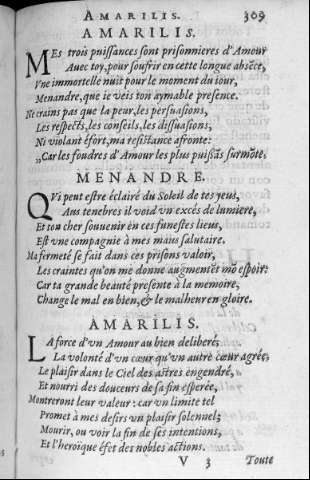 AMARILIS. 309
AMARILIS.
MEs trois puissances sont prisonnieres d'Amour
Auec toy, pour soufrir en cette longue absẽce,
Vne immortelle nuit pour le moment du iour,
Menandre, que ie veis ton aymable presence.
Ne crains pas que la peur, les persuasions,
Les respects, les conseils, les dissuasions,
Ni violant éfort, ma resistance afronte:
„Car les foudres d'Amour les plus puissãs surmõte,
MENANDRE.
QVi peut estre éclairé du Soleil de tes yeus,
Aus tenebres il void vn excés de lumiere,
Et ton cher souuenir en ces funestes lieus,
Est vne compagnie à mes maus salutaire.
Ma fermeté se fait dans ces prisons valoir,
Les craintes qu'on me donne augmentẽt mõ espoir:
Car ta grande beauté presente à la memoire,
Change le mal en bien, & le malheur en gloire.
AMARILIS.
LA force d'vn Amour au bien deliberé;
La volonté d'vn cœur qu'vn autre cœur agrée,
Le plaisir dans le Ciel des astres engendré,
Et nourri des douceurs de sa fin esperée,
Montreront leur valeur: car vn limite tel
Promet à mes desirs vn plaisir solennel;
Mourir, ou voir la fin de ses intentions,
Et l'heroïque éfet des nobles actions.
V 3 Toute